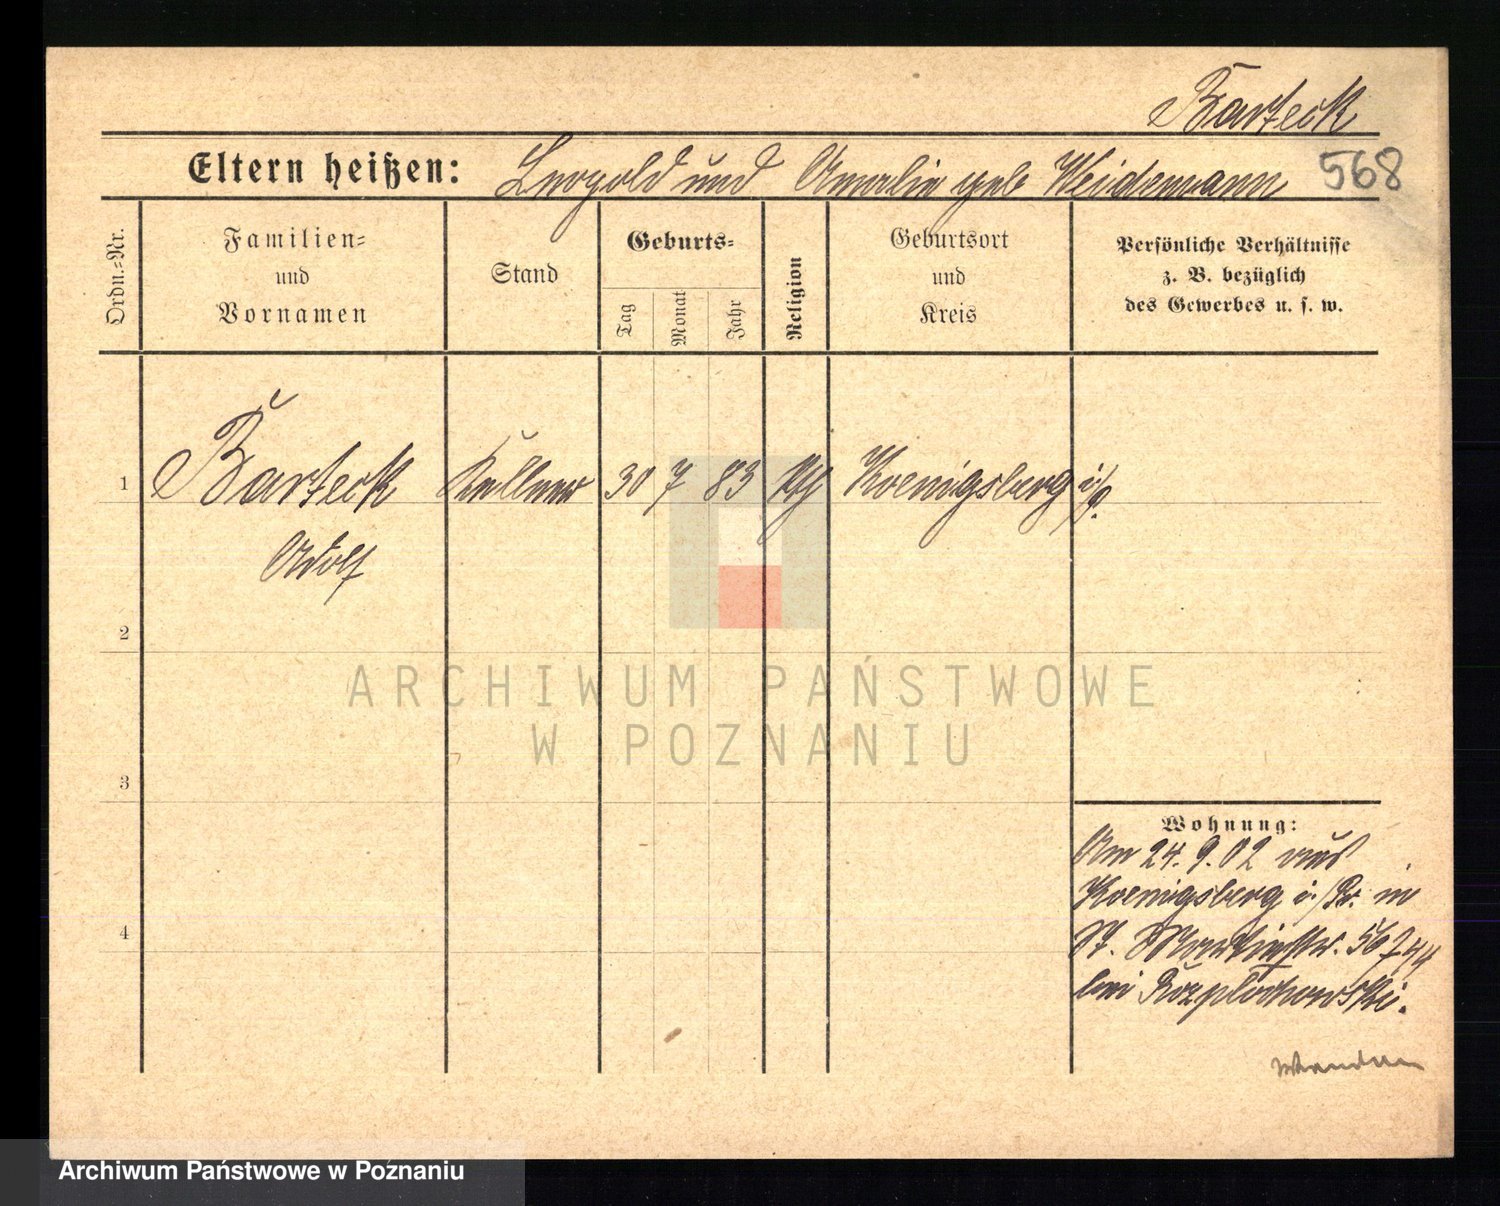 Barteck
Eltern heißen: Leopold und Amalie geb Weidemann 568
Ordn.=Nr.
Familien=
und
Vornamen
Stand
Geburts=
Tag
Monat
Jahr
Religion
Geburtsort
und
Kreis
Persönliche Verhältnisse
z. B. bezüglich
des Gewerbes u. s. w.
1 Barteck Kellner 30 7 83 Koenigsberg i/P.
Adolf
2
3
4
Wohnung:
Am 24. 9. 02 aus
Koenigsberg i./Pr. in
St. Martinstr. 56
bei Rozplochowski.
ARCHIWUM PAŃSTWOWE
W POZNANIU
Archiwum Państwowe w Poznaniu